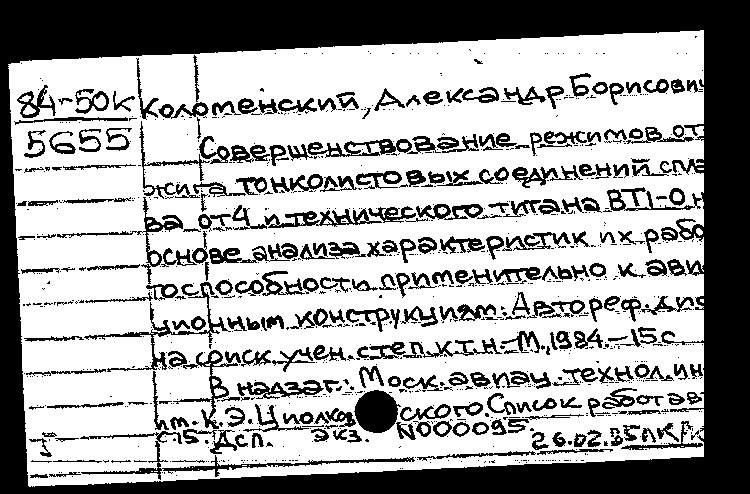 84-50к Коломенский, Александр Борисович
5655 Совершенствование режимов от
жига тонколистовых соединений спла
ва от4 и технического титана ВТ1-0 н
основе анализа характеристик их рабо
тоспособности применительно к авиа
ционным конструкциям: Автореф. дис
на соиск. учен. степ. к.т.н.-М., 1984.-15с
В надзаг.: Моск. авиац. технол. ин
им. К.Э. Циолковского. Список работ ав
с 15. Дсп. Экз. N000095. 26.02.85